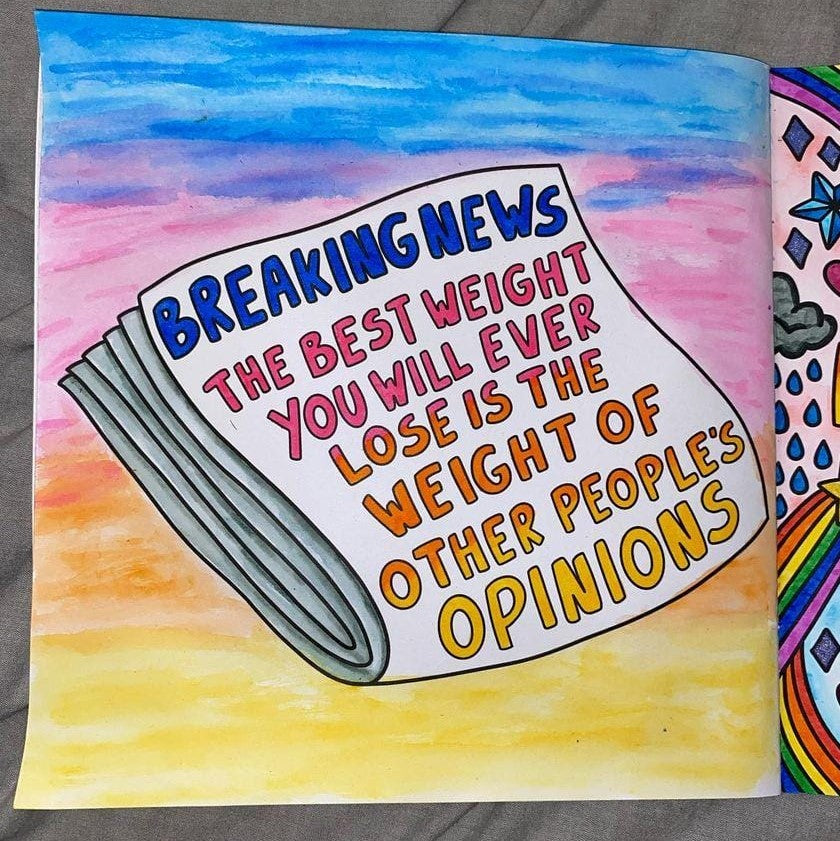 BREAKING NEWS
THE BEST WEIGHT
YOU WILL EVER
LOSE IS THE
WEIGHT OF
OTHER PEOPLE'S
OPINIONS